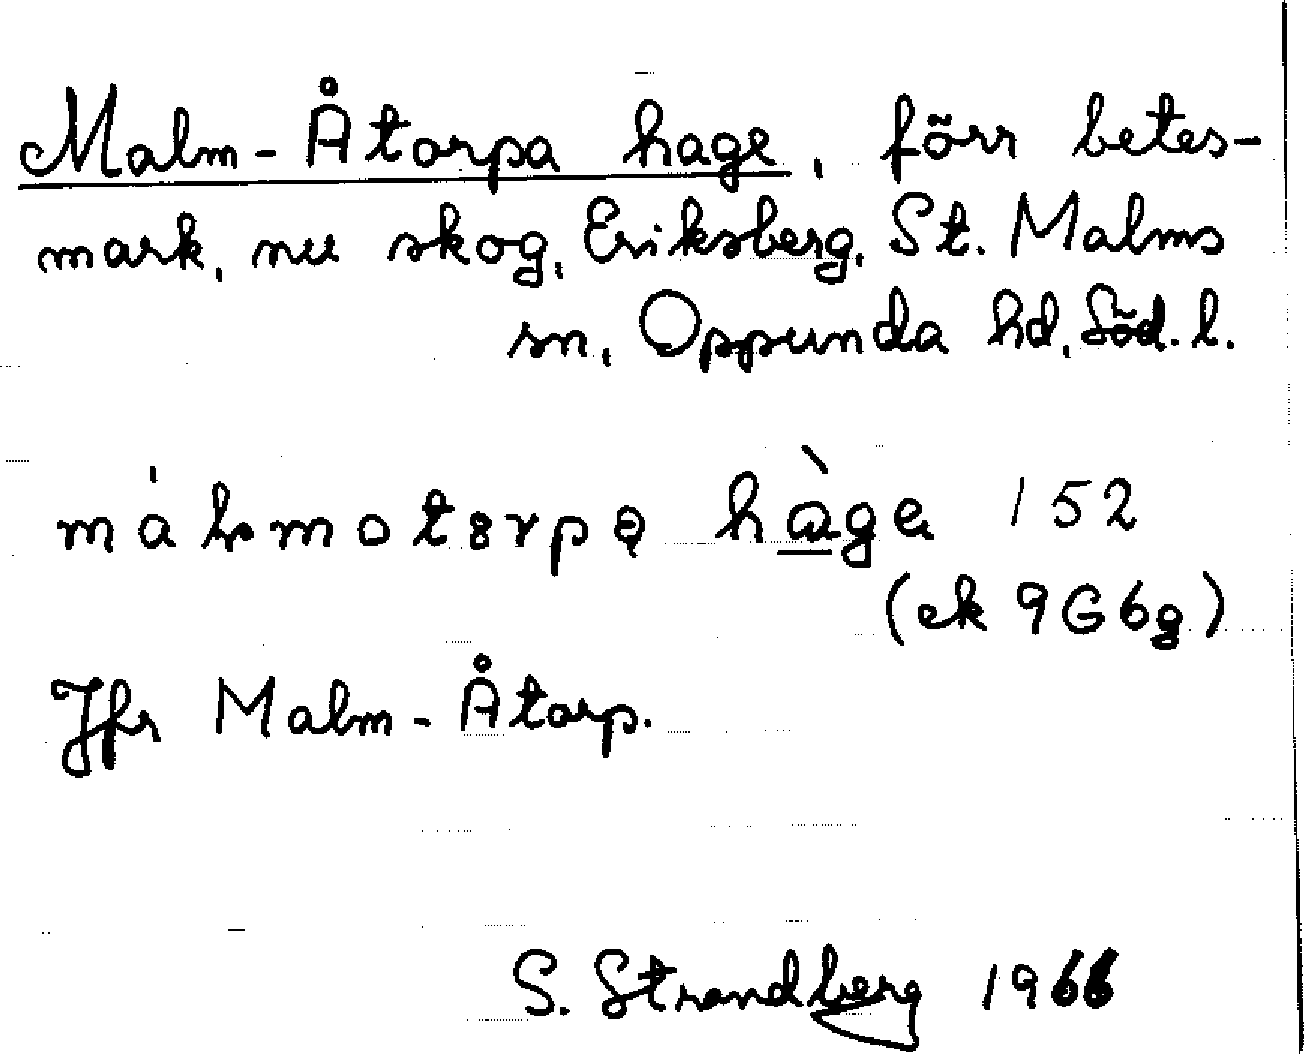 Malm-Åtorpa hage, förr betes-
mark, nu skog, Eriksberg, St. Malms
sn, Oppunda hd, Söd. l.
hage 152
(ek 9G6g)
Jfr Malm-Åtorp.
S. Strandberg 1966